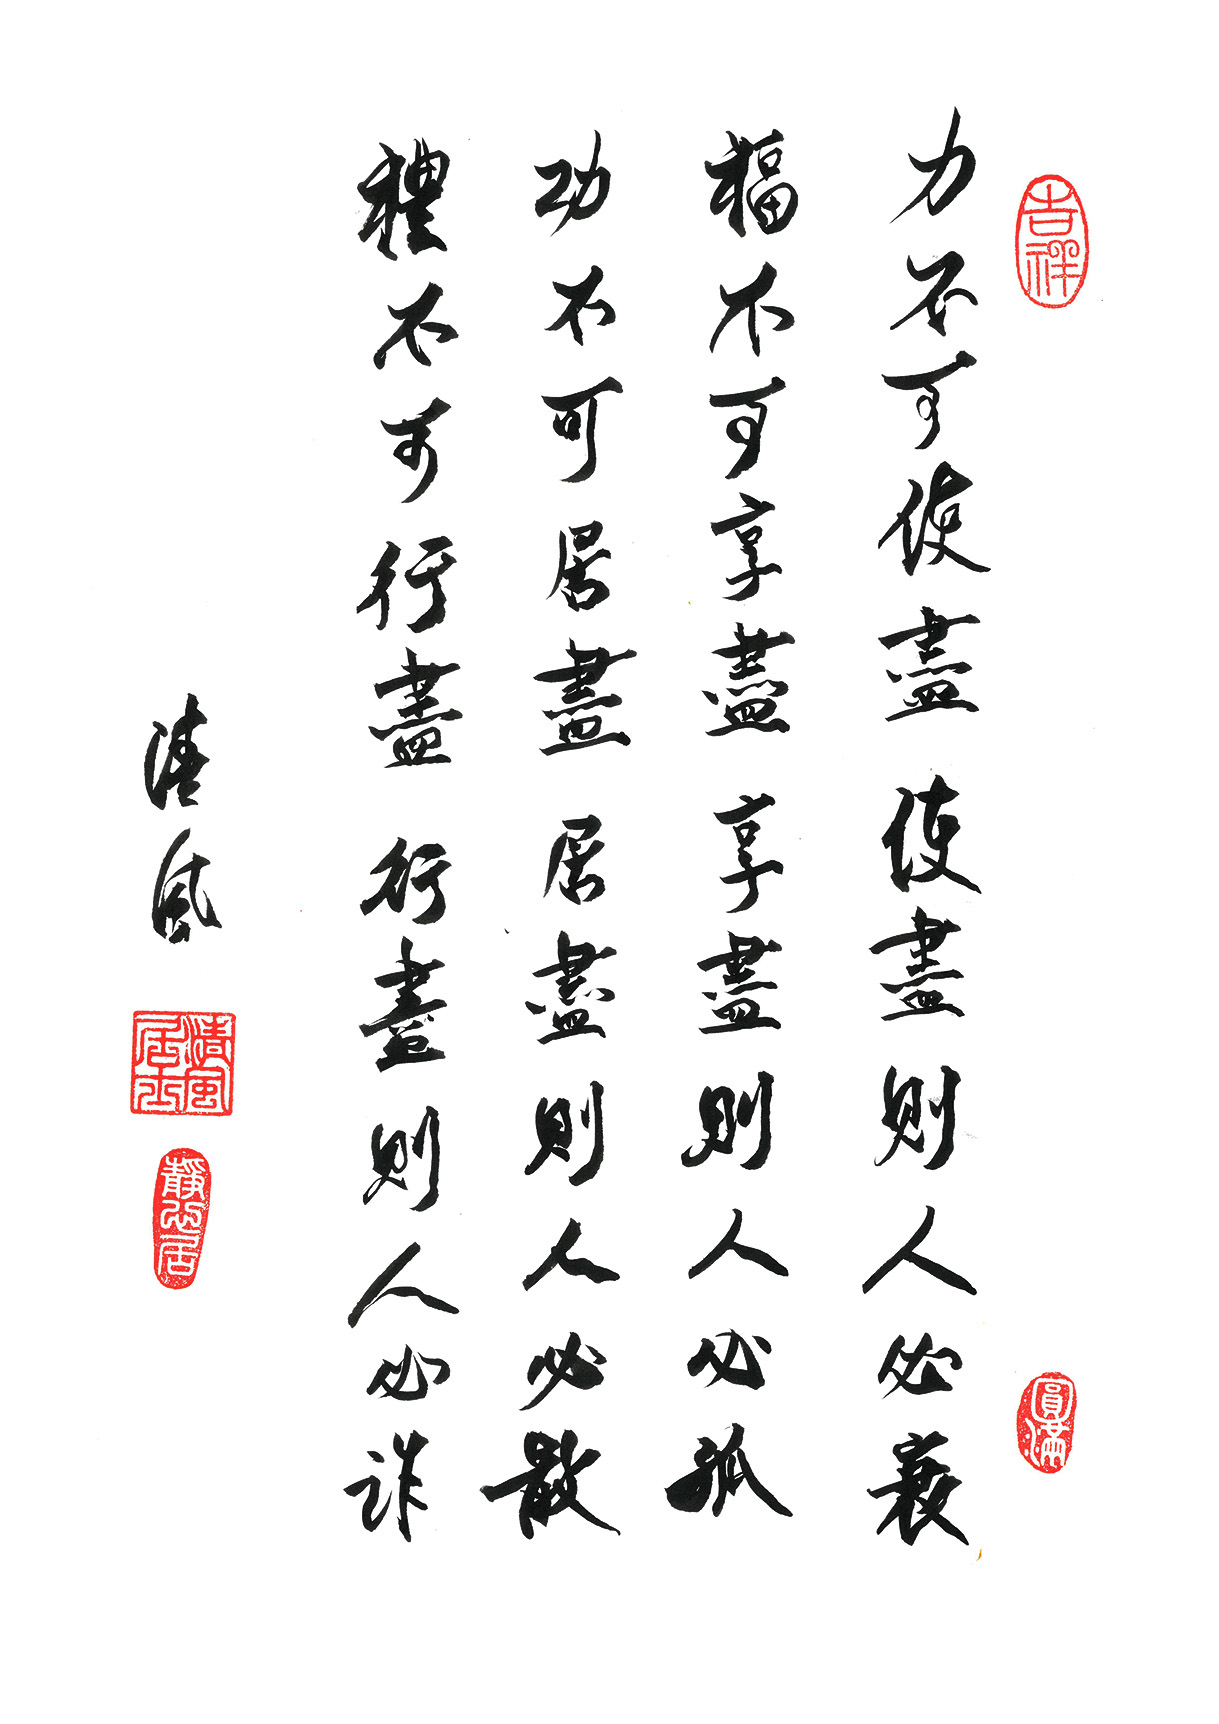 吉祥
力不可使盡 使盡則人必衰
福不可享盡 享盡則人必孤
功不可居盡 居盡則人必散
禮不可行盡 行盡則人必詐
清風
清風居士
靜心居
圓滿